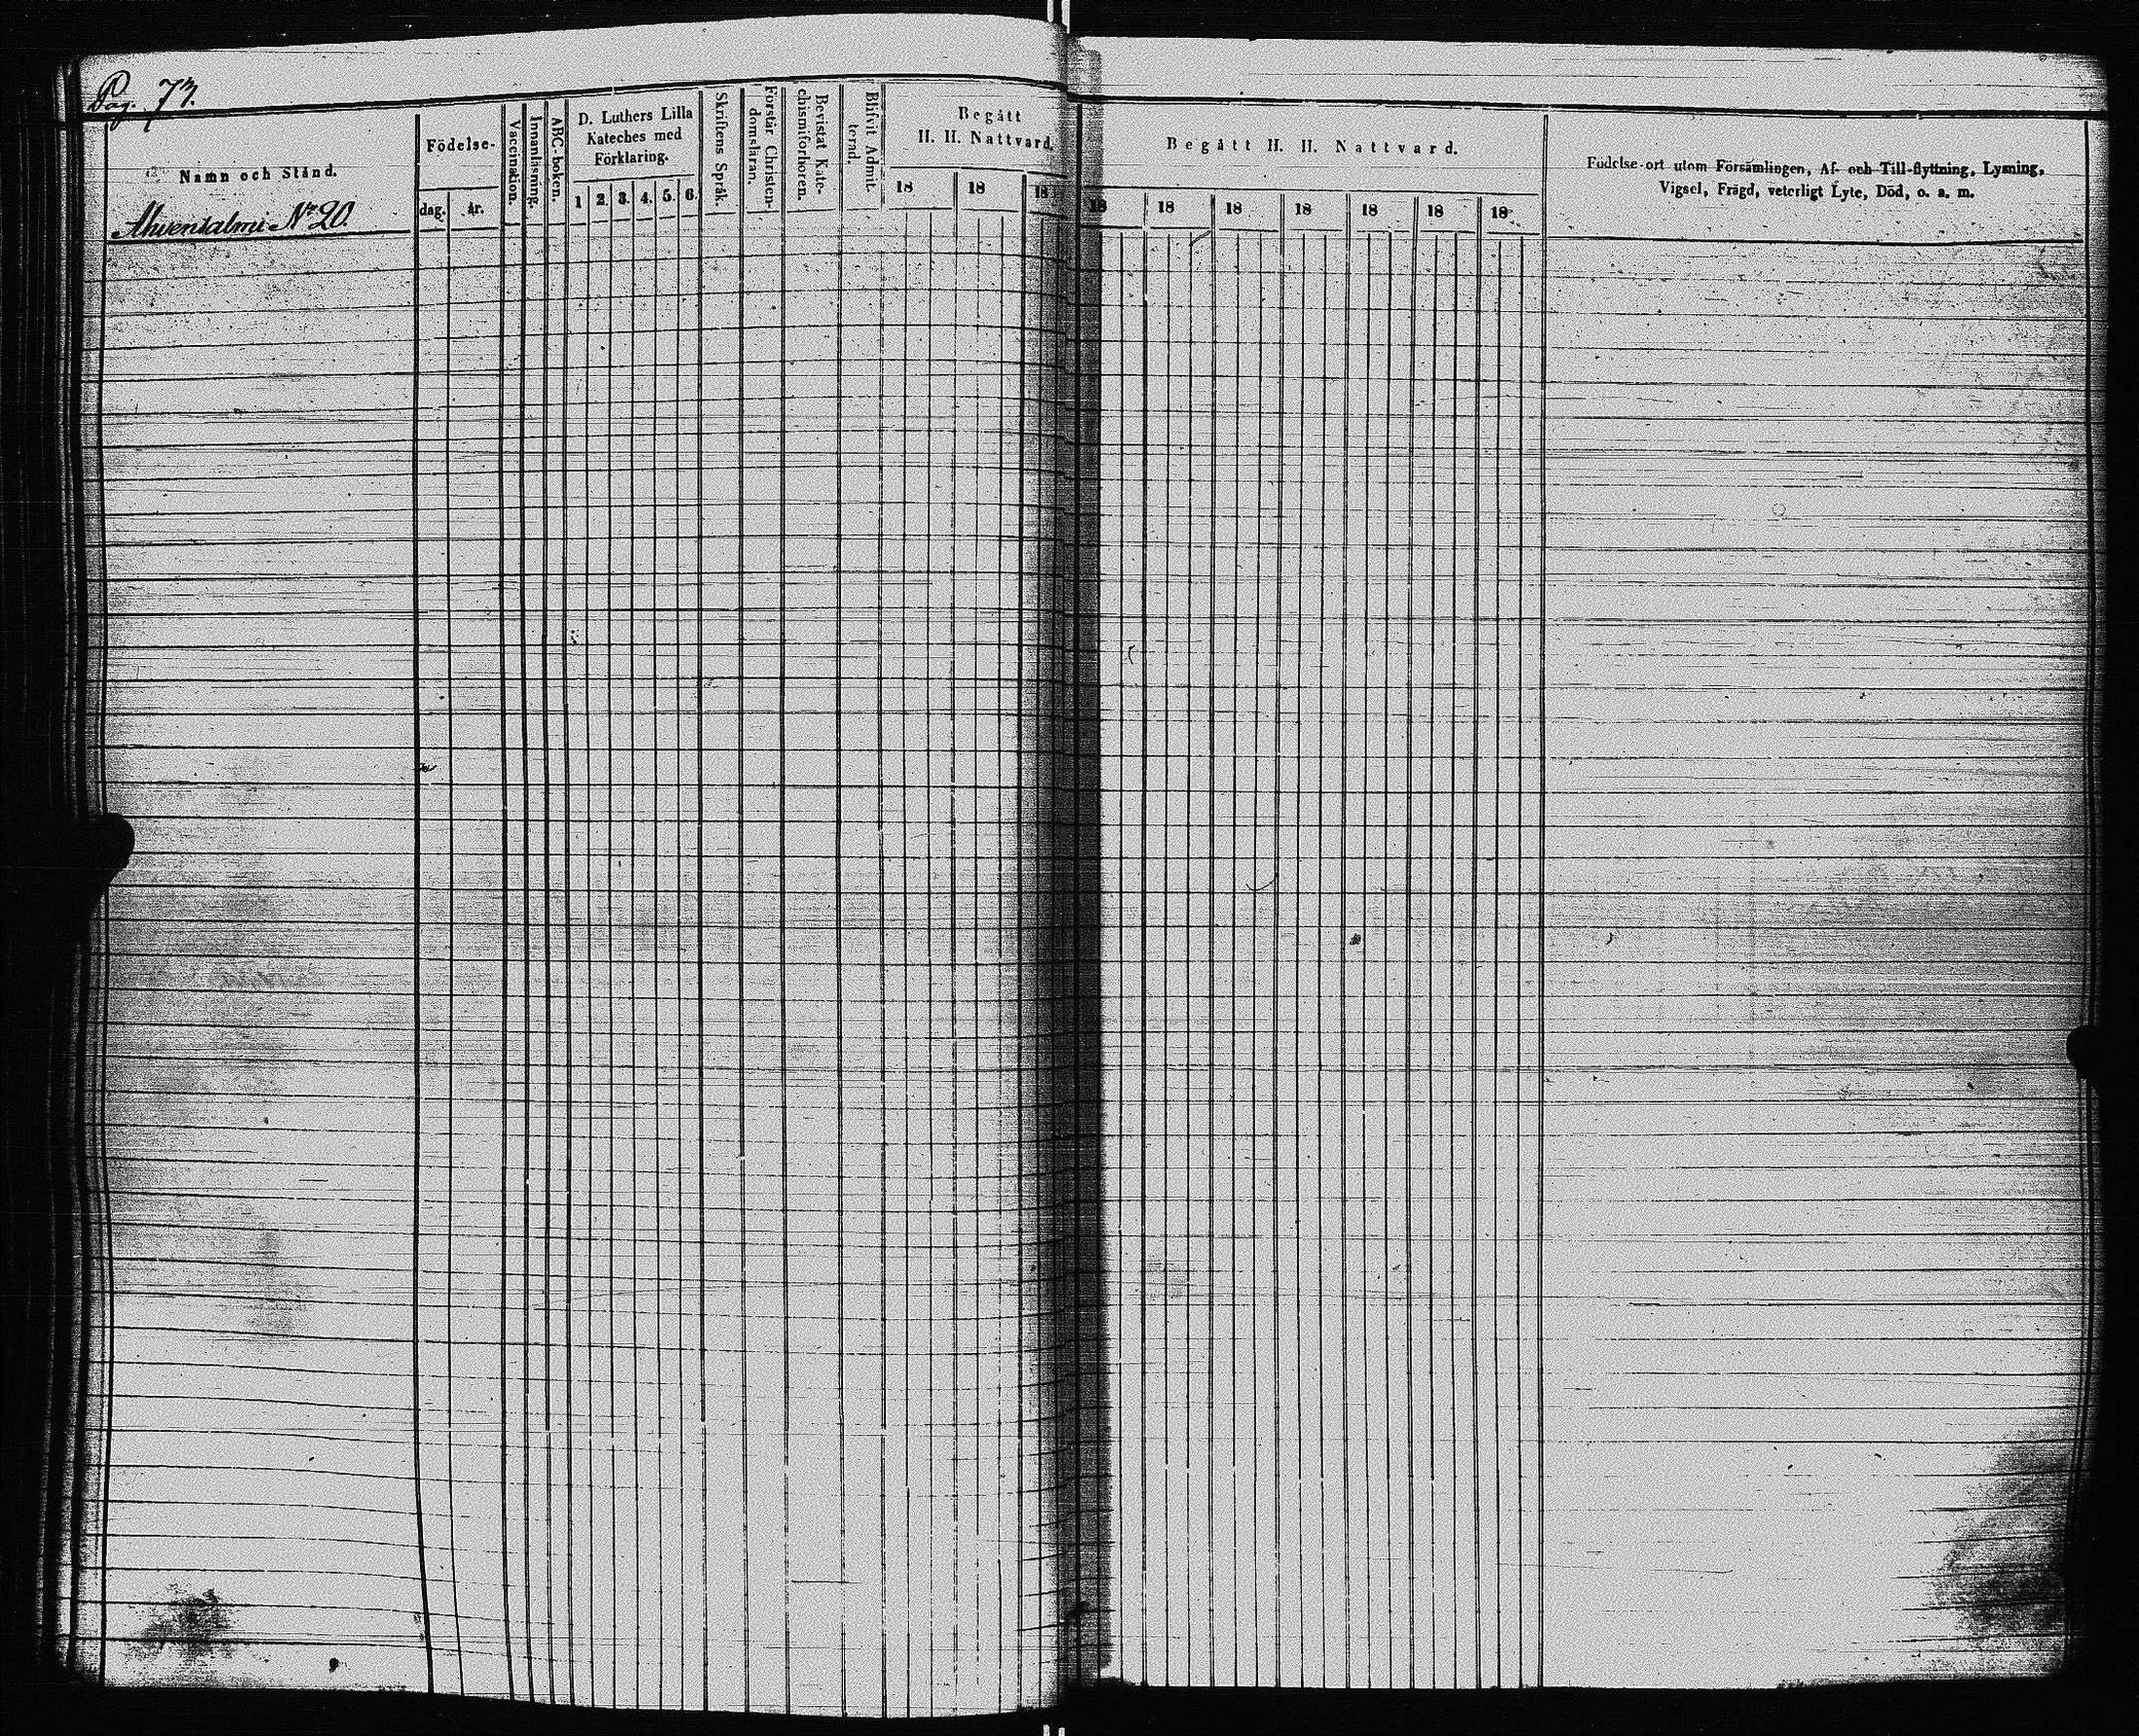 Pag. 73.
Namn och Stånd.
Ahvensalmi № 20.
Födelse-
dag.
år.
Vaccination.
Innanläsning.
ABC-boken.
D. Luthers Lilla
Kateches med
Förklaring.
1 2. 3. 4. 5. 6.
Skriftens Språk.
Förstår Christen-
domsläran.
Bevistat Kate-
chismiförhören.
Blifvit Admit-
terad.
Begått
H. H. Nattvard.
18 18 18
Begått H. H. Nattvard.
18 18 18 18 18 18 18
Födelse-ort utom Församlingen, Af- och Till-flyttning, Lysning,
Vigsel, Frägd, veterligt Lyte, Död, o. s. m.